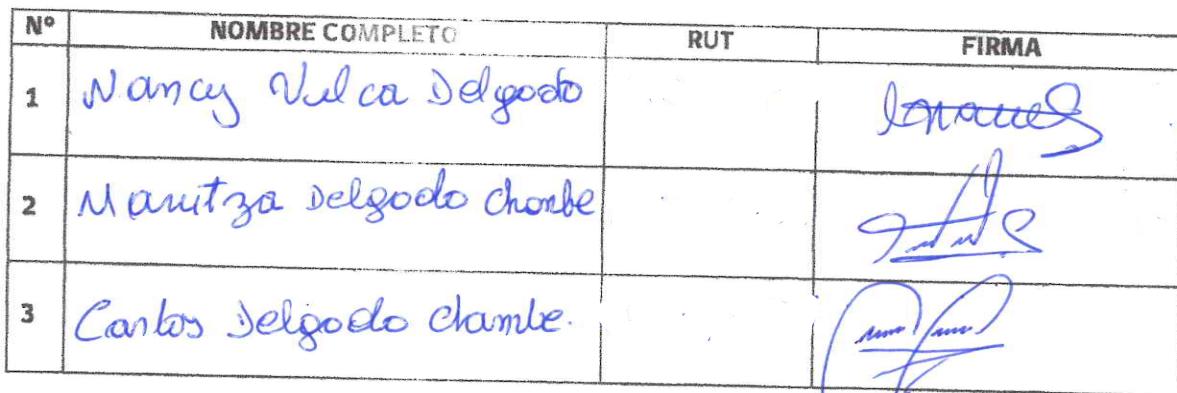 Nº NOMBRE COMPLETO RUT FIRMA
1 Nancy Vilca Delgado
2 Maritza Delgado Chambe
3 Carlos Delgado Chambe.